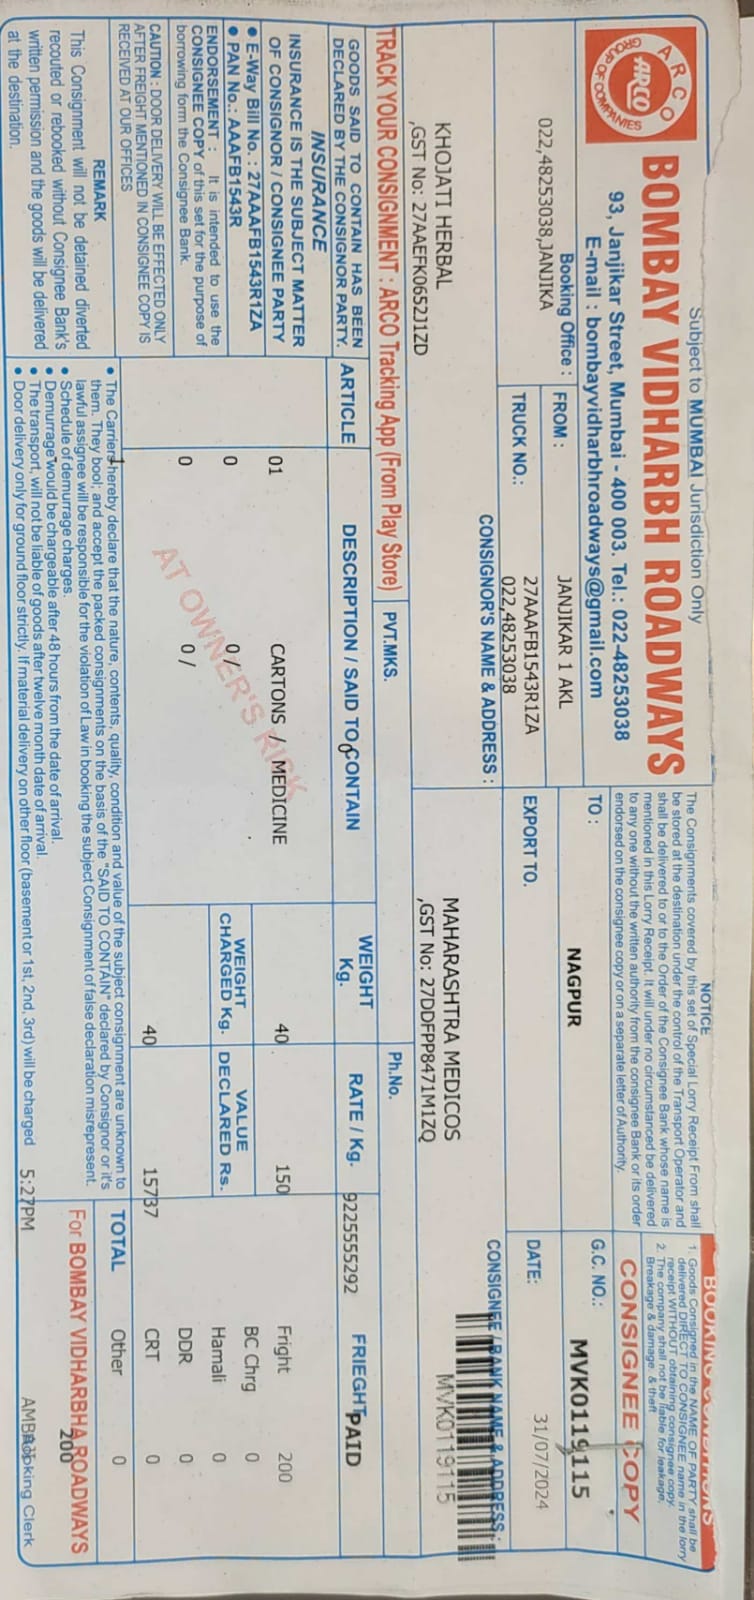 Subject to MUMBAI Jurisdiction Only
ARCO
GROUP OF COMPANIES
ARCO
BOMBAY VIDHARBH ROADWAYS
93, Janjikar Street, Mumbai - 400 003. Tel.: 022-48253038
E-mail : bombayvidharbhroadways@gmail.com
NOTICE
The Consignments covered by this set of Special Lorry Receipt From shall
be stored at the destination under the control of the Transport Operator and
shall be delivered to or to the Order of the Consignee Bank whose name is
mentioned in this Lorry Receipt. It will under no circumstanced be delivered
to any one without the written authority from the consignee Bank or its order
endorsed on the consignee copy or on a separate letter of Authority.
BOOKING CONDITIONS
1. Goods Consigned in the NAME OF PARTY shall be
delivered DIRECT TO CONSIGNEE name in the lorry
receipt WITHOUT obtaining consignee copy.
2. The company shall not be liable for leakage,
Breakage & damage. & theft
CONSIGNEE COPY
Booking Office :
022,48253038,JANJIKA
FROM :
JANJIKAR 1 AKL
TO :
NAGPUR
G.C. NO.:
MVK0119115
TRUCK NO.:
27AAAFB1543R1ZA
022,48253038
EXPORT TO.
DATE:
31/07/2024
CONSIGNOR'S NAME & ADDRESS :
CONSIGNEE / BANK NAME & ADDRESS :
KHOJATI HERBAL
,GST No: 27AAEFK0652J1ZD
MAHARASHTRA MEDICOS
,GST No: 27DDFPP8471M1ZQ
MVK0119115
TRACK YOUR CONSIGNMENT : ARCO Tracking App (From Play Store)
PVT.MKS.
Ph.No.
9225555292
GOODS SAID TO CONTAIN HAS BEEN
DECLARED BY THE CONSIGNOR PARTY.
ARTICLE
DESCRIPTION / SAID TO CONTAIN
0
WEIGHT
Kg.
RATE / Kg.
FRIEGHT
PAID
INSURANCE
INSURANCE IS THE SUBJECT MATTER
OF CONSIGNOR / CONSIGNEE PARTY
01
CARTONS / MEDICINE
40
150
Fright 200
• E-Way Bill No. : 27AAAFB1543R1ZA
• PAN No.: AAAFB1543R
0
0 /
WEIGHT
CHARGED Kg.
VALUE
DECLARED Rs.
BC Chrg 0
Hamali 0
ENDORSEMENT : It is intended to use the
CONSIGNEE COPY of this set for the purpose of
borrowing form the Consignee Bank.
0
0 /
DDR 0
CAUTION : DOOR DELIVERY WILL BE EFFECTED ONLY
AFTER FREIGHT MENTIONED IN CONSIGNEE COPY IS
RECEIVED AT OUR OFFICES
40
15737
CRT 0
AT OWNER'S RISK
TOTAL
Other 0
REMARK
This Consignment will not be detained diverted
recouted or rebooked without Consignee Bank's
written permission and the goods will be delivered
at the destination.
• The Carriers hereby declare that the nature, contents, quality, condition and value of the subject consignment are unknown to
them. They bool; and accept the packed consignments on the basis of the "SAID TO CONTAIN" declared by Consignor or it's
lawful assignee will be responsible for the violation of Law in booking the subject Consignment of false declaration misrepresent.
• Schedule of demurrage charges.
• Demurrage would be chargeable after 48 hours from the date of arrival.
• The transport, will not be liable of goods after twelve month date of arrival.
• Door delivery only for ground floor strictly. If material delivery on other floor (basement or 1st, 2nd, 3rd) will be charged
5:27PM
For BOMBAY VIDHARBHA ROADWAYS
200
Booking Clerk